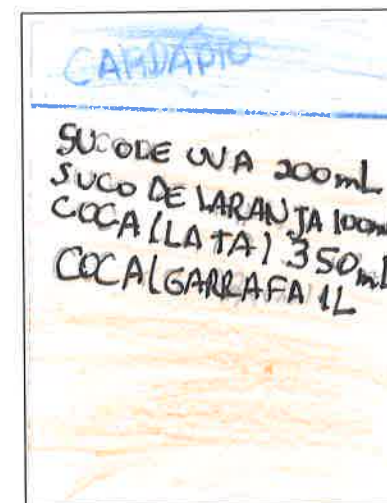 CARDÁPIO
SUCO DE UVA 200mL
SUCO DE LARANJA 100m
COCA (LATA) 350mL
COCA (GARRAFA 1L